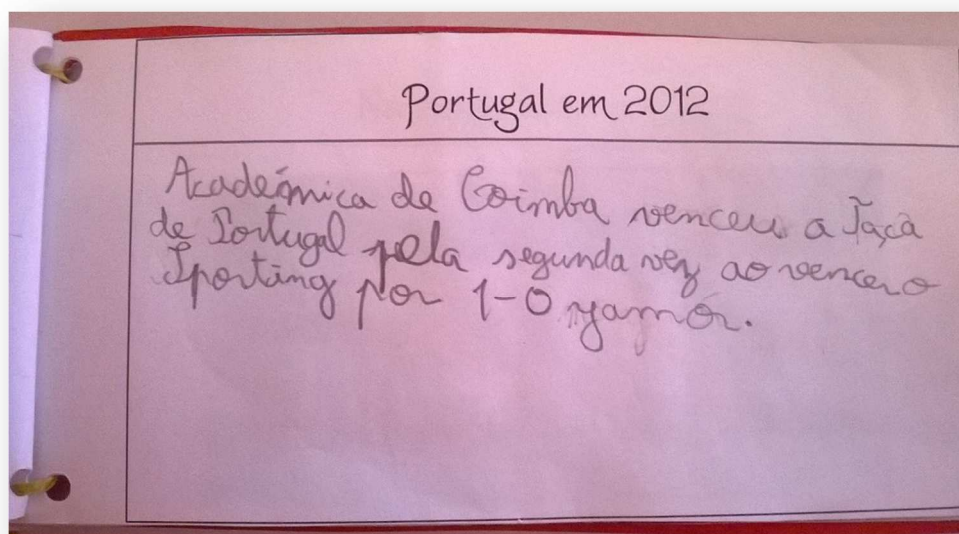 Portugal em 2012
Académica de Coimba venceu a Taça
de Portugal pela segunda vez ao vencer o
Sporting por 1-0 no Jamor.